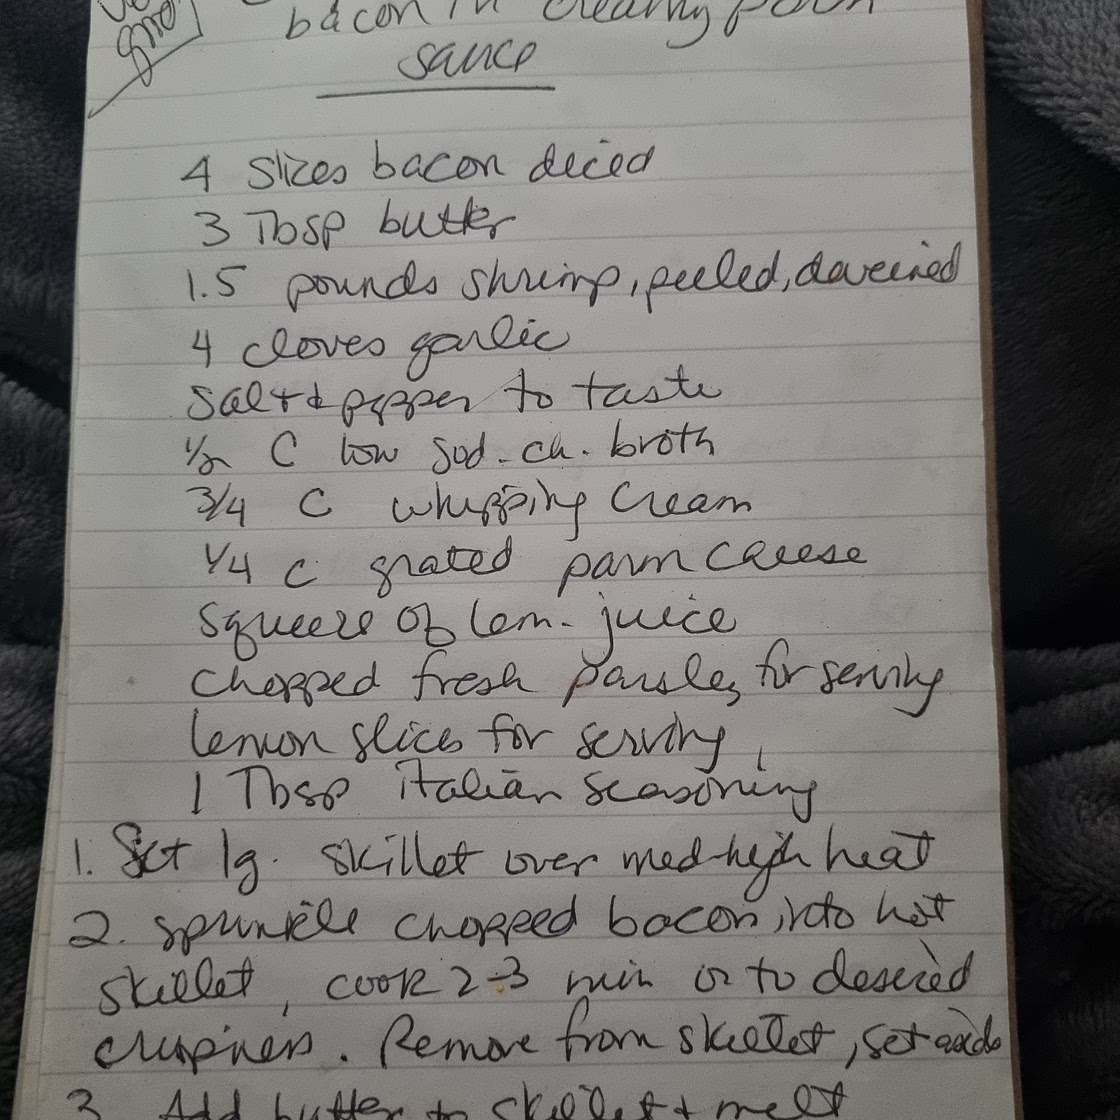 bacon in creamy parm
sauce
4 slices bacon diced
3 Tbsp butter
1.5 pounds shrimp, peeled, deveined
4 cloves garlic
Salt & pepper to taste
1/2 C low sod. ch. broth
3/4 C whipping cream
1/4 C grated parm cheese
squeeze of lem. juice
chopped fresh parsley for serving
lemon slices for serving
1 Tbsp italian seasoning
1. Set lg. skillet over med-high heat
2. sprinkle chopped bacon into hot
skillet, cook 2-3 min or to desired
crispness. Remove from skillet, set aside
3. Add butter to skillet & melt